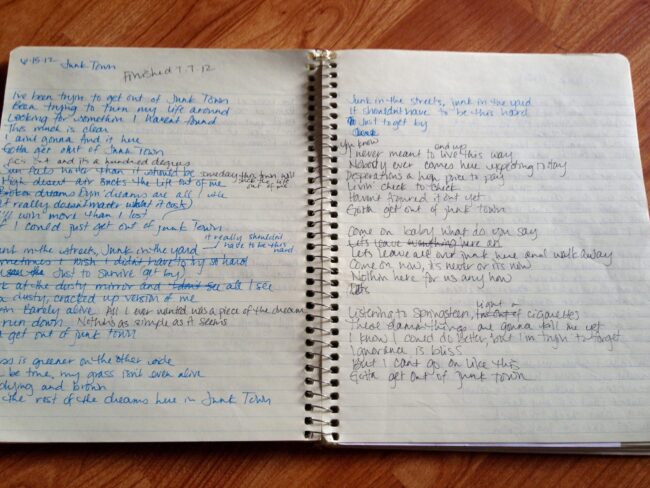 4.15.12 Junk Town
Finished 7.7.12
I've been tryin to get out of Junk Town
Been trying to turn my life around
Looking for somethin I havent found
This much is clear
I aint gonna find it here
Gotta get out of Junk Town
and its a hundred degrees
Sun falls hotter than it should be someday this town will
suck the life
out of me
High desert air sucks the life out of me
Broken dreams dreams are all I
it really doesnt matter what it costs)
I'll win more than I lost
if I could just get out of junk Town
it really shouldnt
have to be this
hard
Junk in the streets, Junk in the yard
Sometimes I wish I didnt have to try so hard
Just to survive get by)
at the dusty mirror and I dont see all I see
a dusty, cracked up version of me
barely alive. All I ever wanted was a piece of the dream
run down Nothins as simple as it seems
get out of junk town
is greener on the other side
be true, my grass isnt even alive
dying and brown
the rest of the dreams here in Junk Town
Junk in the streets, junk in the yard
It shouldnt have to be this hard
Just to get by
you know
end up
I never meant to live this way
Nobody ever comes here expecting to stay
Desperations a high price to pay
Livin check to check
Havent figured it out yet
Gotta get out of junk town
Come on baby what do you say
Lets leave are
Lets leave all our junk here and walk away
Come on now, its never or its now
Nothin here for us any how
Lets
want a
Listening to Springsteen, cigarettes
These damn things are gonna kill me yet
I know I could do better, but I'm tryin to forget
Ignorance is bliss
But I cant go on like this
Gotta get out of junk town